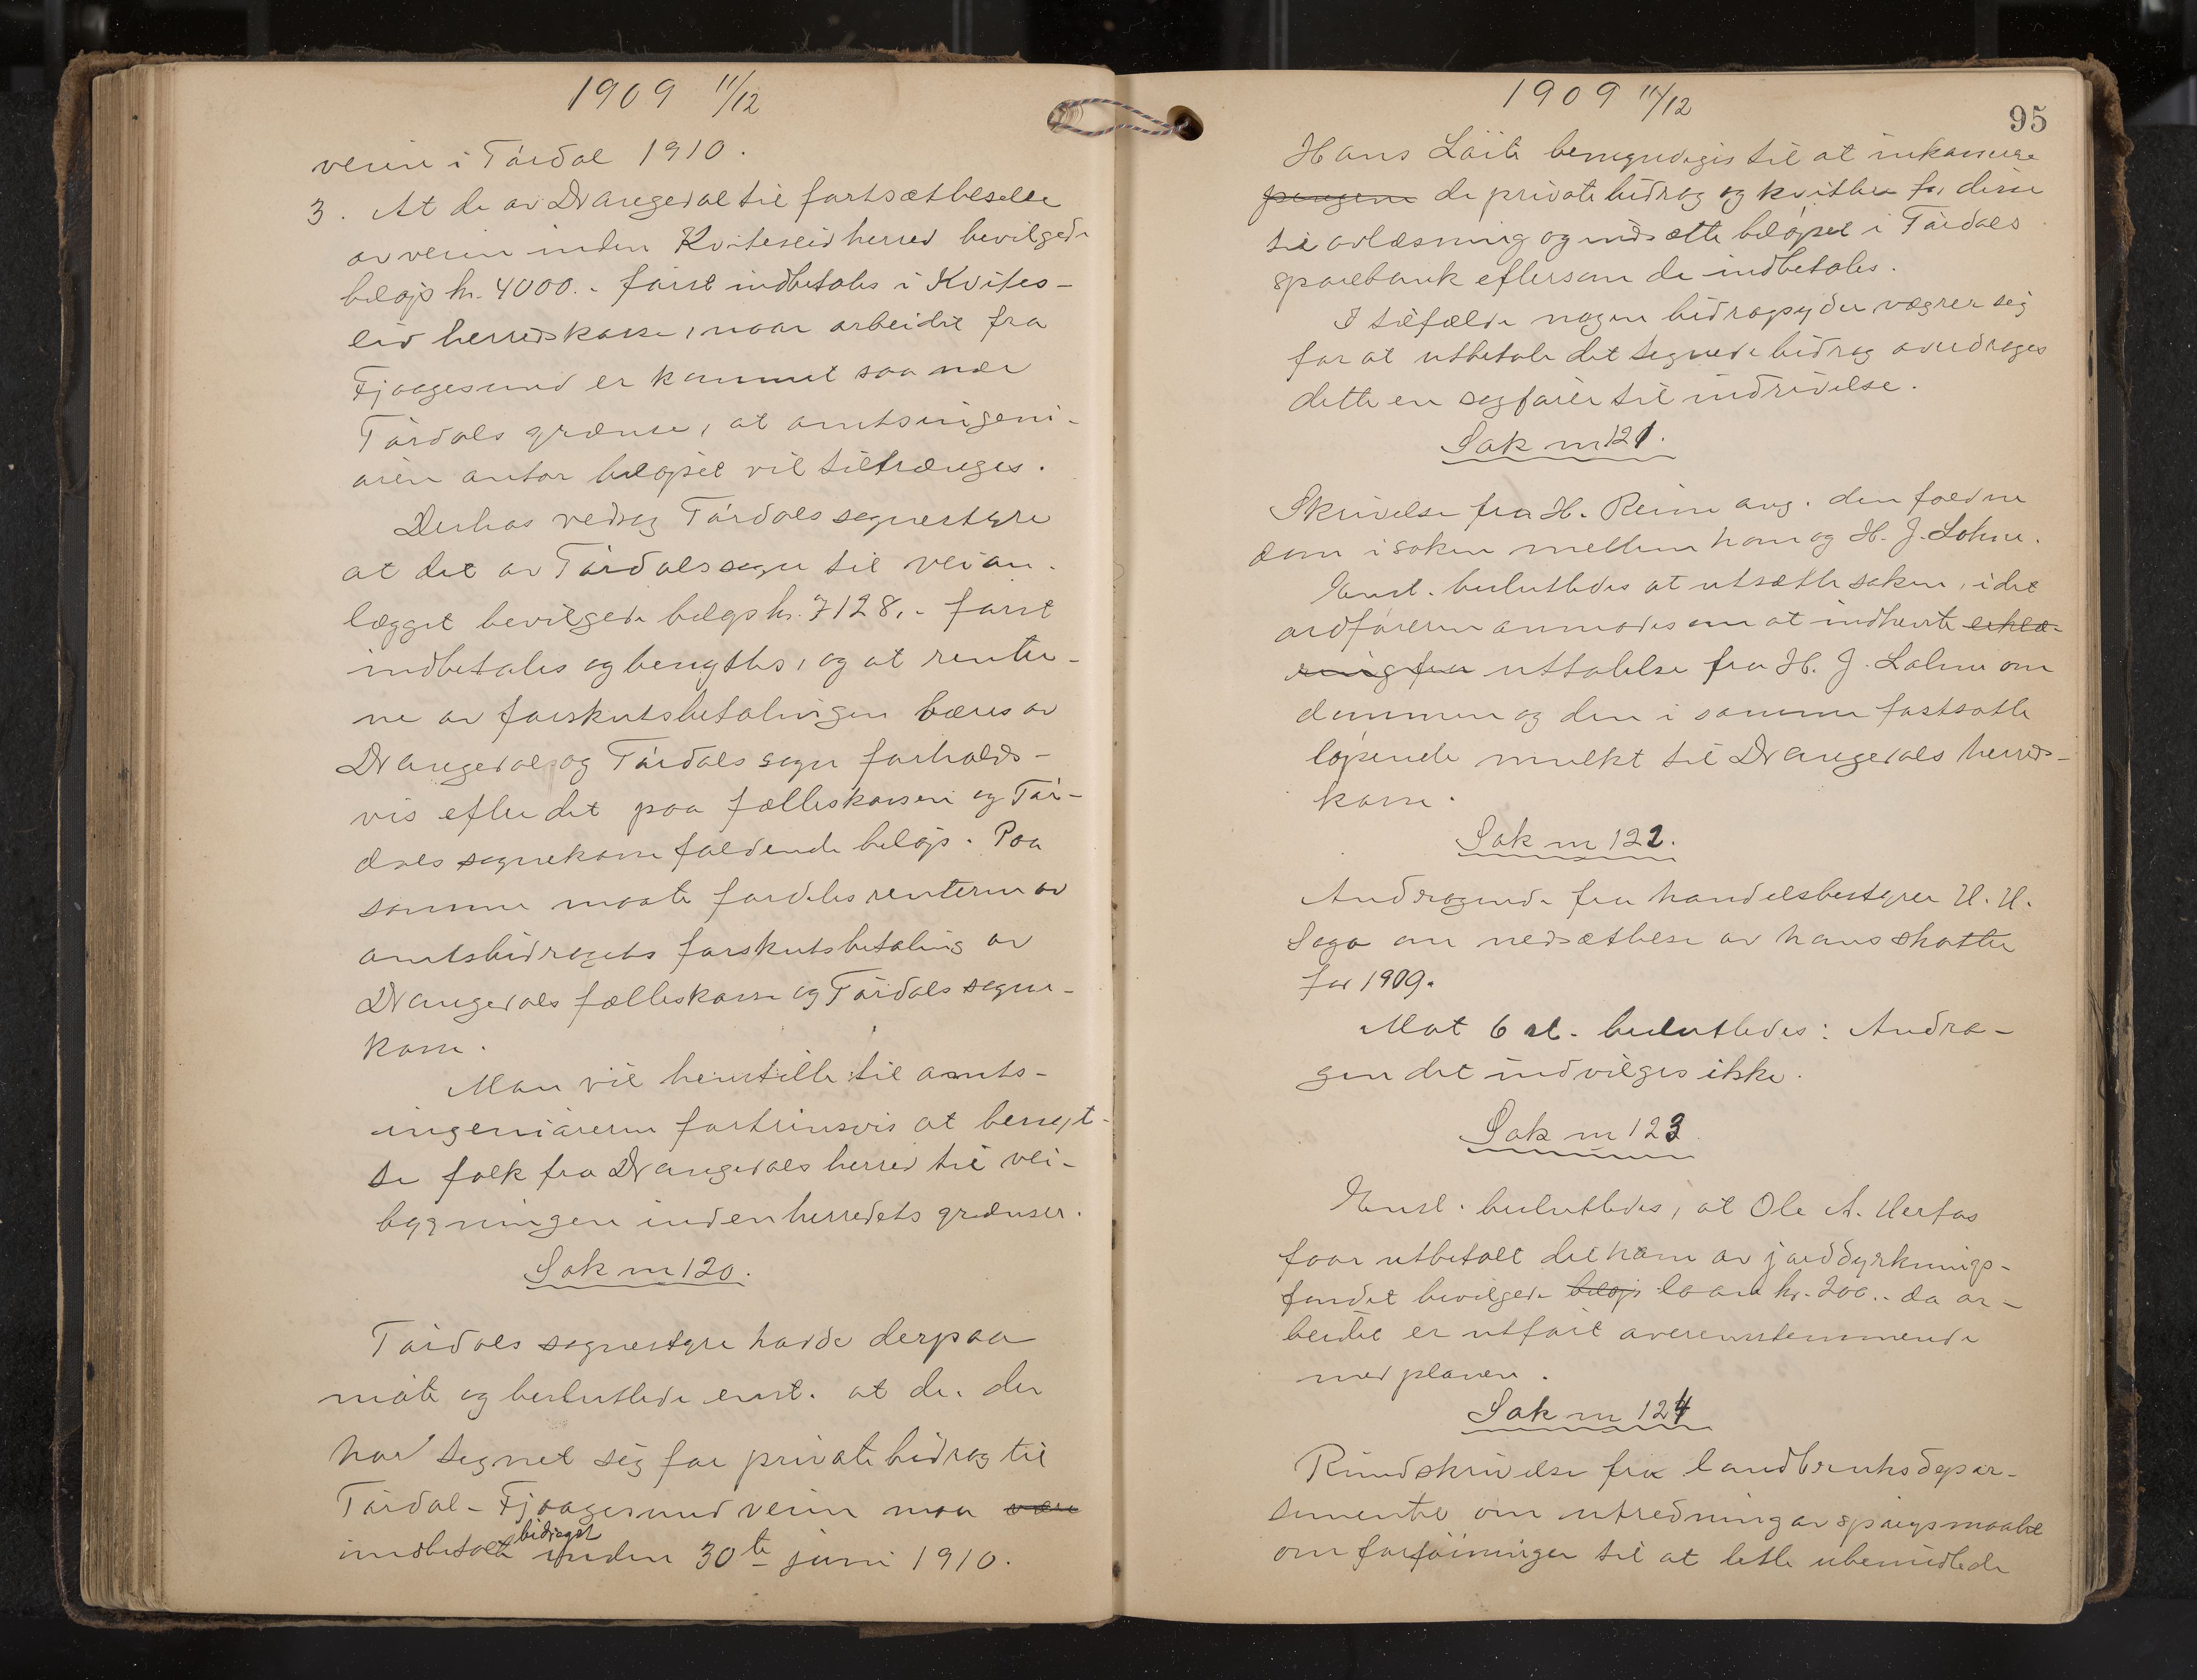 1909 11/12
veien i Tørdal 1910.
3. At de av Drangedal til fortsættelse
av veien inden Kviteseid herred bevilgede
beløp kr. 4000.- først indbetales i Kvites-
eid herredskasse, naar arbeidet fra
Fjaagesund er kommet saa nær
Tørdals grænse, at amtsingeni-
øren antar beløpet vil tiltrænges.
Derhos vedtog Tørdals sognestyre
at det av Tørdals sogn til veian-
lægget bevilgede beløp kr. 7128,- først
indbetales og benyttes, og at renter-
ne av forskutsbetalingen bæres av
Drangedal og Tørdals sogn forholds-
vis efter det paa fælleskassen og Tør-
dals sognekasse faldende beløp. Paa
samme maate fordeles renterne av
amtsbidragets forskutsbetaling av
Drangedals fælleskasse og Tørdals sogne-
kasse.
Man vil henstille til amts-
ingeniøren fortrinsvis at benyt-
te folk fra Drangedals herred til vei-
bygningen inden herredets grænser.
Sak nr 120.
Tørdals sognestyre hadde derpaa
møte og besluttede enst. at de, der
har tegnet sig for private bidrag til
Tørdal-Fjaagesund veien maa være
bidraget
indbetalt inden 30te juni 1910.
1909 11/12
95
Hans Löite bemyndiges til at inkassere
pengene de private bidrag og kvittere for disse
til avlæsning og indsætte beløpet i Tørdals
sparebank eftersom de indbetales.
I tilfælde nogen bidragsyder vægrer sig
for at utbetale det tegnede bidrag overdrages
dette en sagfører til inddrivelse.
Sak nr 121.
Skrivelse fra H. Reime ang. den faldne
dom i saken mellem ham og H. J. Lohne.
Enst. besluttedes at utsætte saken, idet
ordføreren anmodes om at indhente erklæ-
ring fra uttalelse fra H. J. Lohne om
dommen og den i samme fastsatte
løpende mulkt til Drangedals herreds-
kasse.
Sak nr 122.
Andragende fra handelsbestyrer H. H.
Saga om nedsættelse av hans skatter
for 1909.
Mot 6 st. besluttedes: Andra-
gendet indvilges ikke.
Sak nr 123
Enst. besluttedes, at Ole A. Herfos
faar utbetalt det ham av jorddyrknings-
fondet bevilgede beløp laan kr. 200.- da ar-
beidet er utført overensstemmende
med planen.
Sak nr 124
Rundskrivelse fra landbruksdepar-
tementet om utredning av spørgsmaalet
om forføininger til at lette ubemidlede